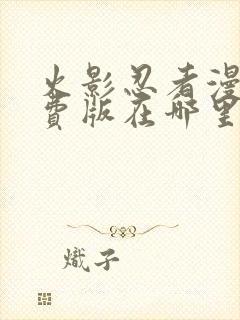 火影忍者漫
费版在哪里
熾子